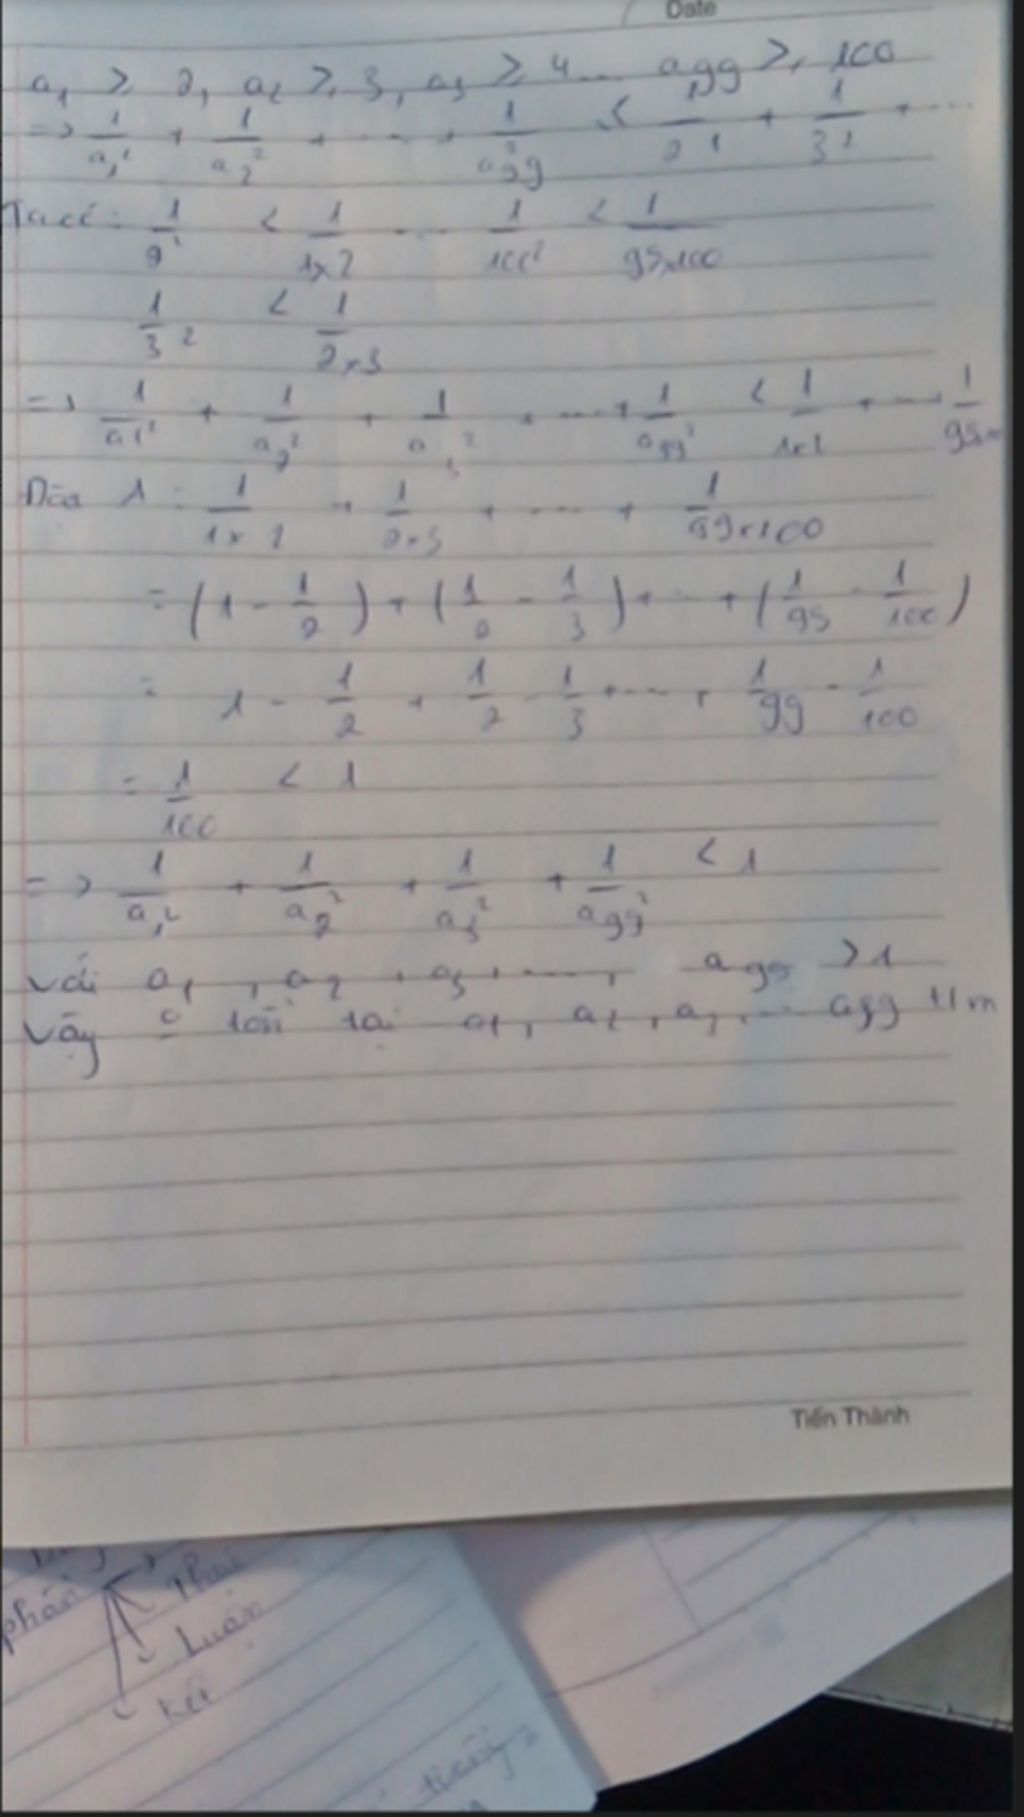 Date
a₁ ≥ 2, a₂ ≥ 3, a₃ ≥ 4 ... a₉₉ ≥ 100
=> 1/a₁² + 1/a₂² + ... + 1/a₉₉² ≤ 1/2² + 1/3² + ...
Ta có: 1/2² < 1/1x2 ... 1/100² < 1/99x100
1/3² < 1/2x3
=> 1/a₁² + 1/a₂² + 1/a₃² + ... + 1/a₉₉² < 1/1x2 + ... 1/99x
1/1x2 + 1/2x3 + ... + 1/99x100
= (1 - 1/2) + (1/2 - 1/3) + ... + (1/99 - 1/100)
= 1 - 1/2 + 1/2 - 1/3 + ... + 1/99 - 1/100
= 1/100 < 1
=> 1/a₁² + 1/a₂² + 1/a₃² + 1/a₉₉² < 1
Với a₁, a₂, a₃, ..., a₉₉ > 1
Vậy tồn tại a₁, a₂, a₃, ... a₉₉
Tiến Thành
phán
Luận
Kết